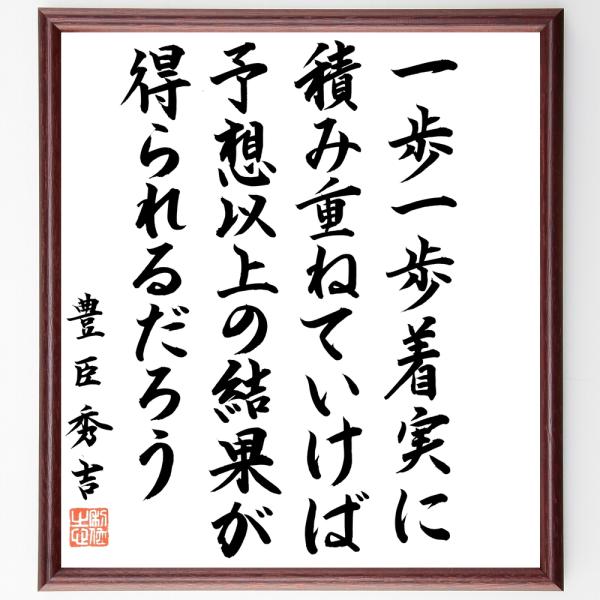 一歩一歩着実に
積み重ねていけば
予想以上の結果が
得られるだろう
豊臣秀吉